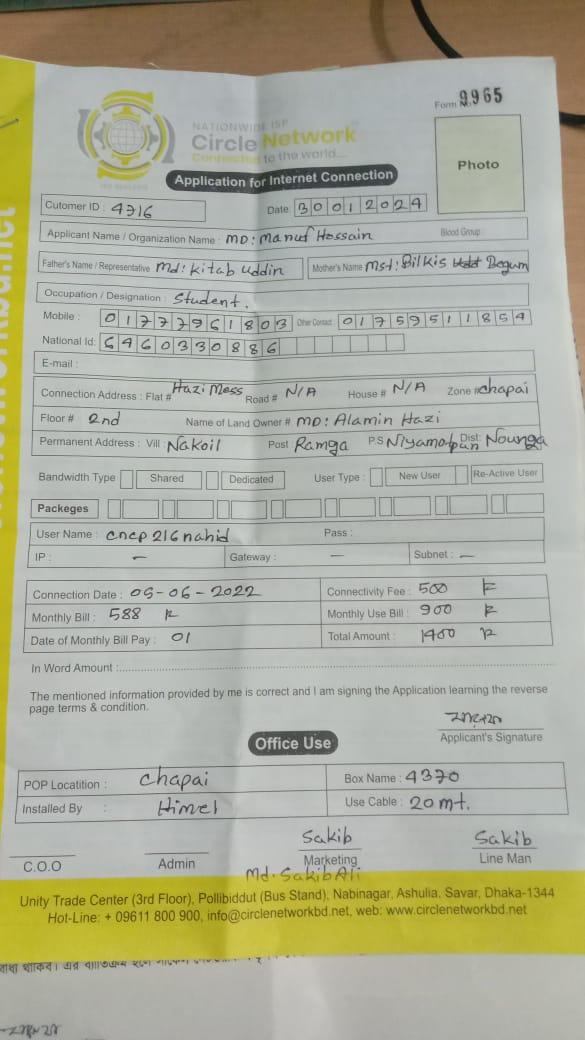 Form No. 9965
NATIONWIDE ISP
Circle Network
Connected to the world...
Photo
Application for Internet Connection
Cutomer ID : 4316
Date: 30 01 2024
Applicant Name / Organization Name : MD: Maruf Hossain Blood Group :
Father's Name / Representative Md: Kitab Uddin Mother's Name Mst: Bilkis Begum
Occupation / Designation : Student.
Mobile : 01777961803 Other Contact 01759511854
National Id: 6460330886
E-mail :
Connection Address : Flat # Hazi Mess Road # N/A House # N/A Zone # chapai
Floor # 2nd Name of Land Owner # MD: Alamin Hazi
Permanent Address : Vill : Nakoil Post Ramga P.S Niyamatpur Dist: Nounga
Bandwidth Type Shared Dedicated User Type : New User Re-Active User
Packeges
User Name : cncp216nahid Pass :
IP : — Gateway : — Subnet : —
Connection Date : 05-06-2022 Connectivity Fee : 500
Monthly Bill : 588 Monthly Use Bill : 900
Date of Monthly Bill Pay : 01 Total Amount : 1400
In Word Amount :
The mentioned information provided by me is correct and I am signing the Application learning the reverse
page terms & condition.
Applicant's Signature
Office Use
POP Locatition : chapai Box Name : 4370
Installed By : Himel Use Cable : 20 mt.
Sakib Sakib
C.O.O Admin Marketing Line Man
Md. Sakib Ali
Unity Trade Center (3rd Floor), Pollibiddut (Bus Stand), Nabinagar, Ashulia, Savar, Dhaka-1344
Hot-Line: + 09611 800 900, info@circlenetworkbd.net, web: www.circlenetworkbd.net